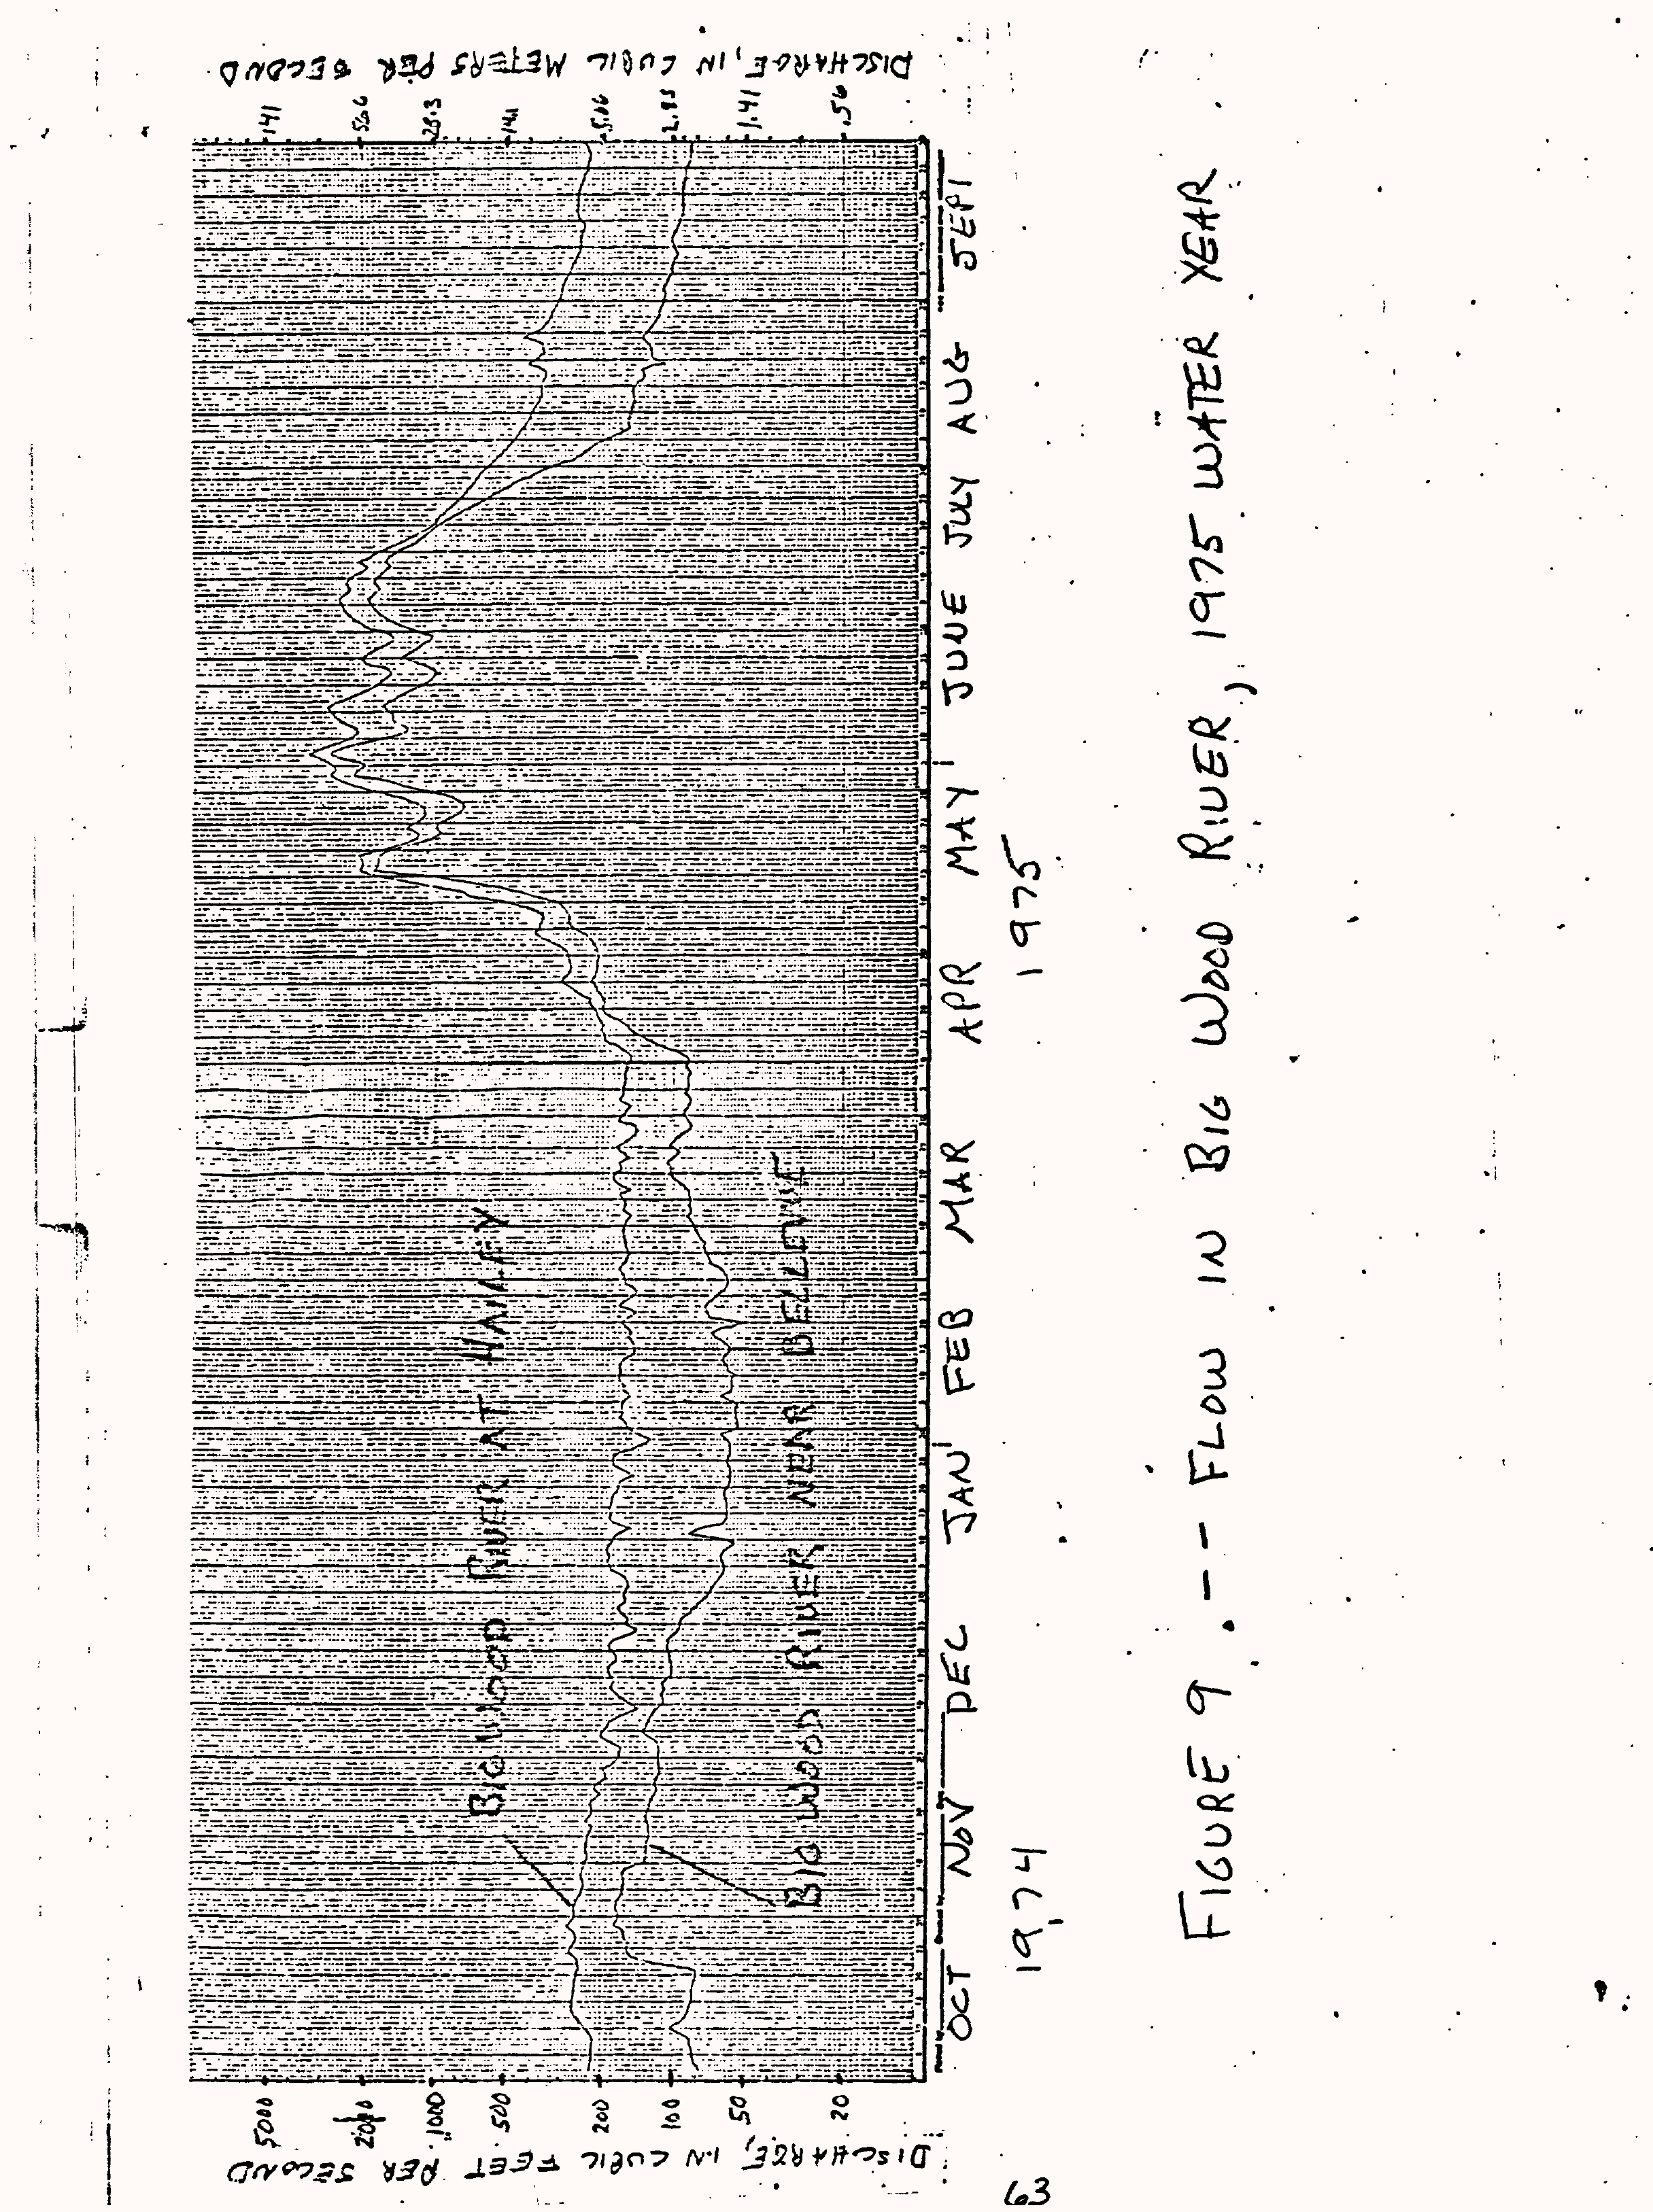 DISCHARGE, IN CUBIC FEET PER SECOND
5000
2000
1000
500
200
100
50
20
DISCHARGE, IN CUBIC METERS PER SECOND
141
56.6
28.3
14.1
2.83
1.41
.56
BIG WOOD RIVER AT HAILEY
BIG WOOD RIVER NEAR BELLEVUE
OCT NOV DEC JAN FEB MAR APR MAY JUNE JULY AUG SEPT
1974 1975
FIGURE 9.-- FLOW IN BIG WOOD RIVER, 1975 WATER YEAR
63